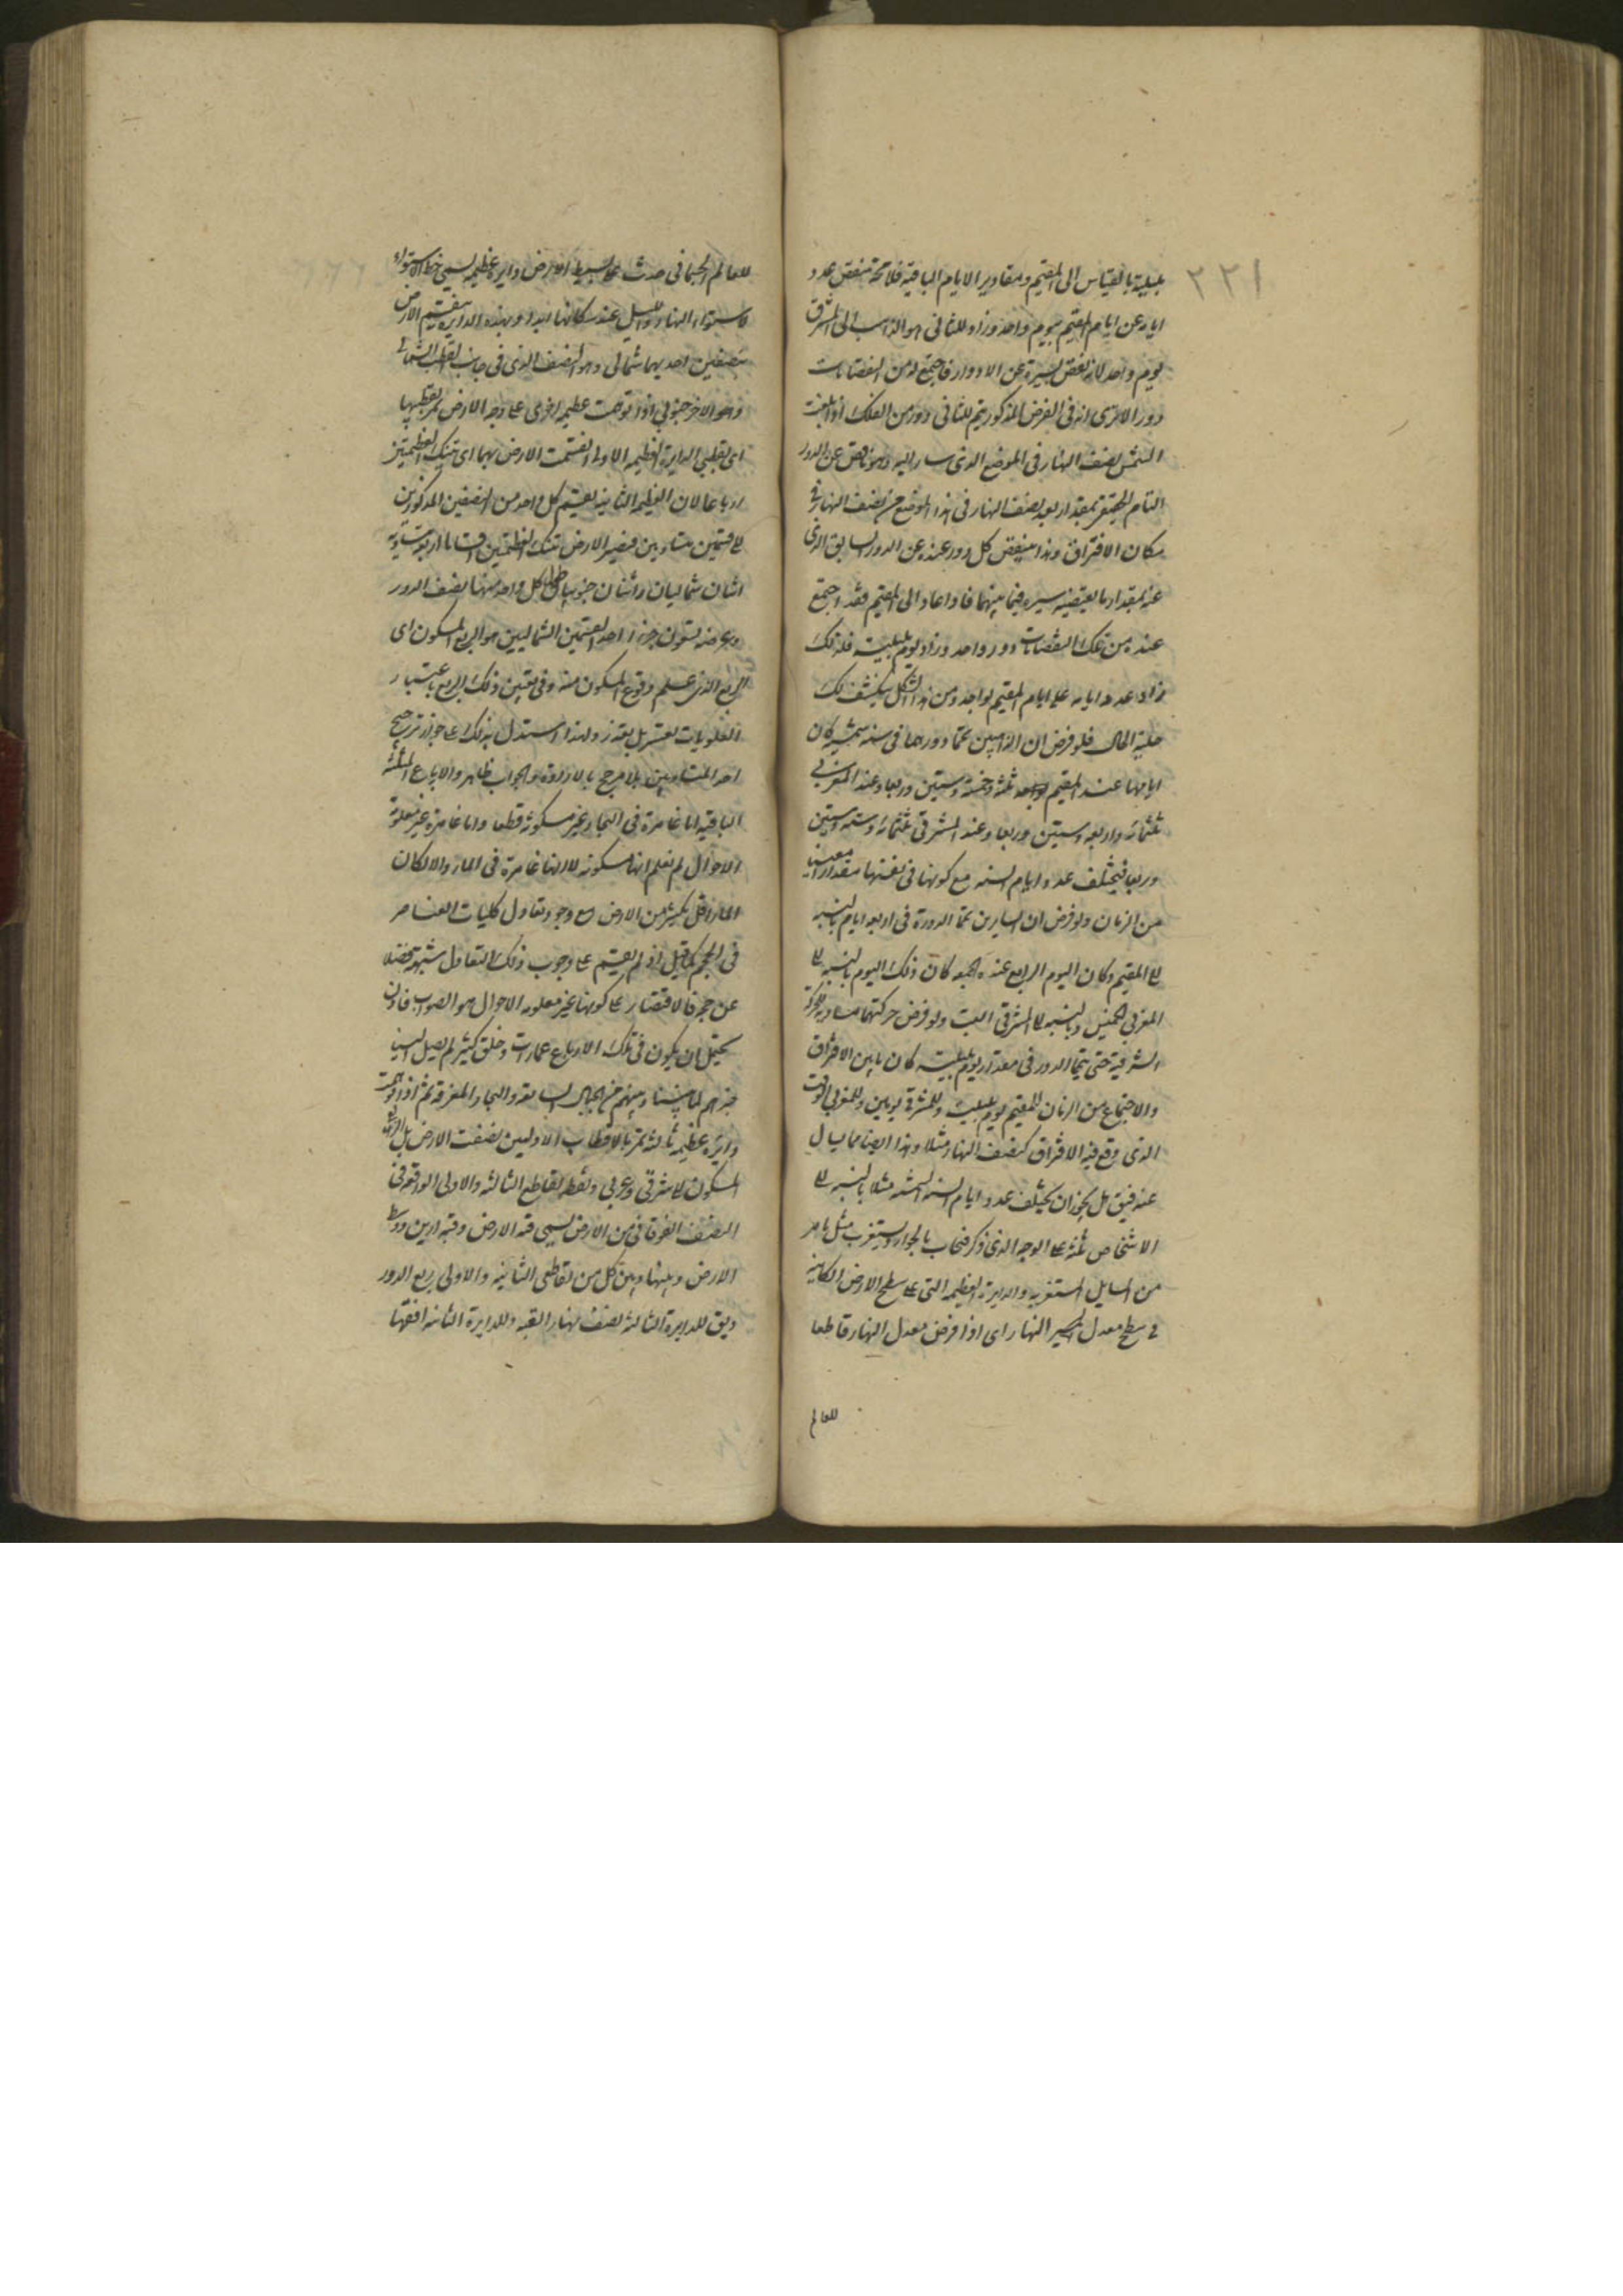 ٢٢١
بليلية بالقياس الى المقيم ومقادير الايام الباقية فلا محة منقص عدد
ايامه عن ايام المقيم بيوم واحد وزاد للثانى هو الذاهب الى المشرق
يوم واحد لانه نقص بسيره عن الادوار فاجتمع له من النقصانات
دور الا ترى انه فى الفرض المذكور يتم للثانى دور من الفلك اذا بلغت
الشمس نصف النهار فى الموضع الذى سار اليه وهو ناقص عن الدور
التام الحقيقى بمقدار بعد نصف النهار فى هذا الموضع عن نصف النهار فى
مكان الافتراق وهذا ينقص كل دور عنده عن الدور السابق الذى
عنده بمقدار ما يقتضيه سيره فيما بينهما فاذا عاد الى المقيم فقد اجتمع
عنده من تلك النقصانات دور واحد وزاد يوم بليلته فلذلك
زاد عدد ايامه على ايام المقيم بواحد ومن هذا الشكل ينكشف لك
جلية الحال فلو فرض ان الذاهبين تمما دورهما فى سنة شمسية كان
ايامها عند المقيم ثلثمائة وخمسة وستين وربعا وعند المغربى
ثلثمائة واربعة وستين وربعا وعند المشرقى ثلثمائة وستة وستين
وربعا فيختلف عدد ايام السنة مع كونها فى نفسها مقدارا معينا
من الزمان ولو فرض ان السايرين تمما الدورة فى اربعة ايام بالنسبة
الى المقيم وكان اليوم الرابع عنده الجمعة كان ذلك اليوم بالنسبة الى
المغربى الخميس وبالنسبة الى المشرقى السبت ولو فرض حركتهما مساوية للحركة
الشرقية حتى يتما الدور فى مقدار يوم بليلته كان ما بين الافتراق
والاجتماع من الزمان للمقيم يوم بليلته وللمشرقى يومين وللمغربى الوقت
الذى وقع فيه الافتراق كنصف النهار مثلا وهذا ايضا مما يسال
عنه فيق هل يجوز ان يختلف عدد ايام السنة الشمسية مثلا بالنسبة الى
الاشخاص ثلثة على الوجه الذى ذكر فيجاب بالجواز ويستغرب مثل ما مر
من المسايل المستغربة والدايرة العظيمة التى على سطح الارض الكاينة
فى سطح معدل النهار اى اذا فرض معدل النهار قاطعا
للعالم
للعالم الجسمانى حدث على بسيط الارض دايرة عظيمة يسمى خط الاستواء
لاستواء النهار والليل عند سكانها ابدا وبهذه الدايرة ينقسم الارض
بنصفين احديهما شمالى وهو النصف الذى فى جانب القطب الشمالى
وهو الاخر جنوبى اذا توهمت عظيمة اخرى على وجه الارض تمر بقطبيها
اى بقطبى الدايرة العظيمة الاولى انقسمت الارض بهما اى بتينك العظيمتين
ارباعا لان العظيمة الثانية يقسم كل واحد من النصفين المذكورين
الى قسمين متساويين فيصير الارض بتينك العظيمتين اقساما اربعة متساوية
اثنان شماليان واثنان جنوبيان طول كل واحد منها نصف الدور
وعرضه تسعون جزءا احد القسمين الشماليين هو الربع المسكون اى
الربع الذى علم وقوع المسكون منه وفى تعيين ذلك الربع باعتبار
العلويات تعسر بل تعذر ولهذا استدل بذلك على جواز ترجيح
احد المتساويين بلا مرجح بالارادة والجواب ظاهر والارباع الثلثة
الباقية اما غامرة فى البحار غير مسكونة قطعا واما غامرة غير معلومة
الاحوال لم نعلم انها مسكونة لا انها غامرة فى الماء والا لكان
الماء اقل بكثير من الارض مع وجود تعادل كليات العناصر
فى الحجم كما قيل اذ لم يقم على وجوب ذلك التعادل شبهة فضلا
عن حجة فالاقتصار على كونها غير معلومة الاحوال هو الصواب فاذن
يحتمل ان يكون فى تلك الارباع عمارات وخلق كثير لم يصل الينا
خبرهم لما بيننا وبينهم من الجبال الشاهقة والبحار المغرقة ثم اذا توهمت
دايرة عظيمة ثالثة تمر بالاقطاب الاوليين نصفت الارض بل الربع
المسكون الى شرقى وغربى ونقطة تقاطع الثالثة والاولى الواقعة فى
النصف الفوقانى من الارض يسمى قبة الارض وقبة ارين ووسط
الارض وبينها وبين كل من تقاطعى الثانية والاولى ربع الدور
ويق للدايرة الثالثة نصف نهار القبة وللدايرة الثانية افقها